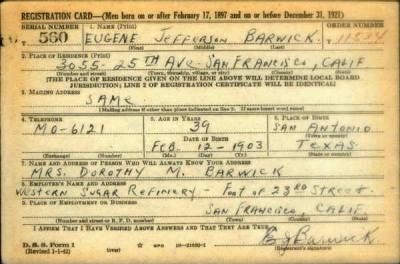 REGISTRATION CARD—(Men born on or after February 17, 1897 and on or before December 31, 1921)
SERIAL NUMBER 1. NAME (Print) ORDER NUMBER
560 EUGENE JEFFERSON BARWICK. 11554
(First) (Middle) (Last)
2. PLACE OF RESIDENCE (Print)
3055- 25TH AVE- SAN FRANCISCO, CALIF
(Number and street) (Town, township, village, or city) (County) (State)
[THE PLACE OF RESIDENCE GIVEN ON THE LINE ABOVE WILL DETERMINE LOCAL BOARD
JURISDICTION; LINE 2 OF REGISTRATION CERTIFICATE WILL BE IDENTICAL]
3. MAILING ADDRESS
SAME
[Mailing address if other than place indicated on line 2. If same insert word same]
4. TELEPHONE 5. AGE IN YEARS 6. PLACE OF BIRTH
MO-6121 39 SAN ANTONIO
DATE OF BIRTH (Town or county)
FEB. 12-1903 TEXAS
(Exchange) (Number) (Mo.) (Day) (Yr.) (State or country)
7. NAME AND ADDRESS OF PERSON WHO WILL ALWAYS KNOW YOUR ADDRESS
MRS. DOROTHY M. BARWICK
8. EMPLOYER'S NAME AND ADDRESS
WESTERN SUGAR REFINERY - FOOT OF 23RD STREET.
9. PLACE OF EMPLOYMENT OR BUSINESS
SAN FRANCISCO CALIF.
(Number and street or R. F. D. number) (Town) (County) (State)
I AFFIRM THAT I HAVE VERIFIED ABOVE ANSWERS AND THAT THEY ARE TRUE.
D. S. S. Form 1
(Revised 1-1-42) GPO 16-21630-1 E J Barwick
(Registrant's signature)